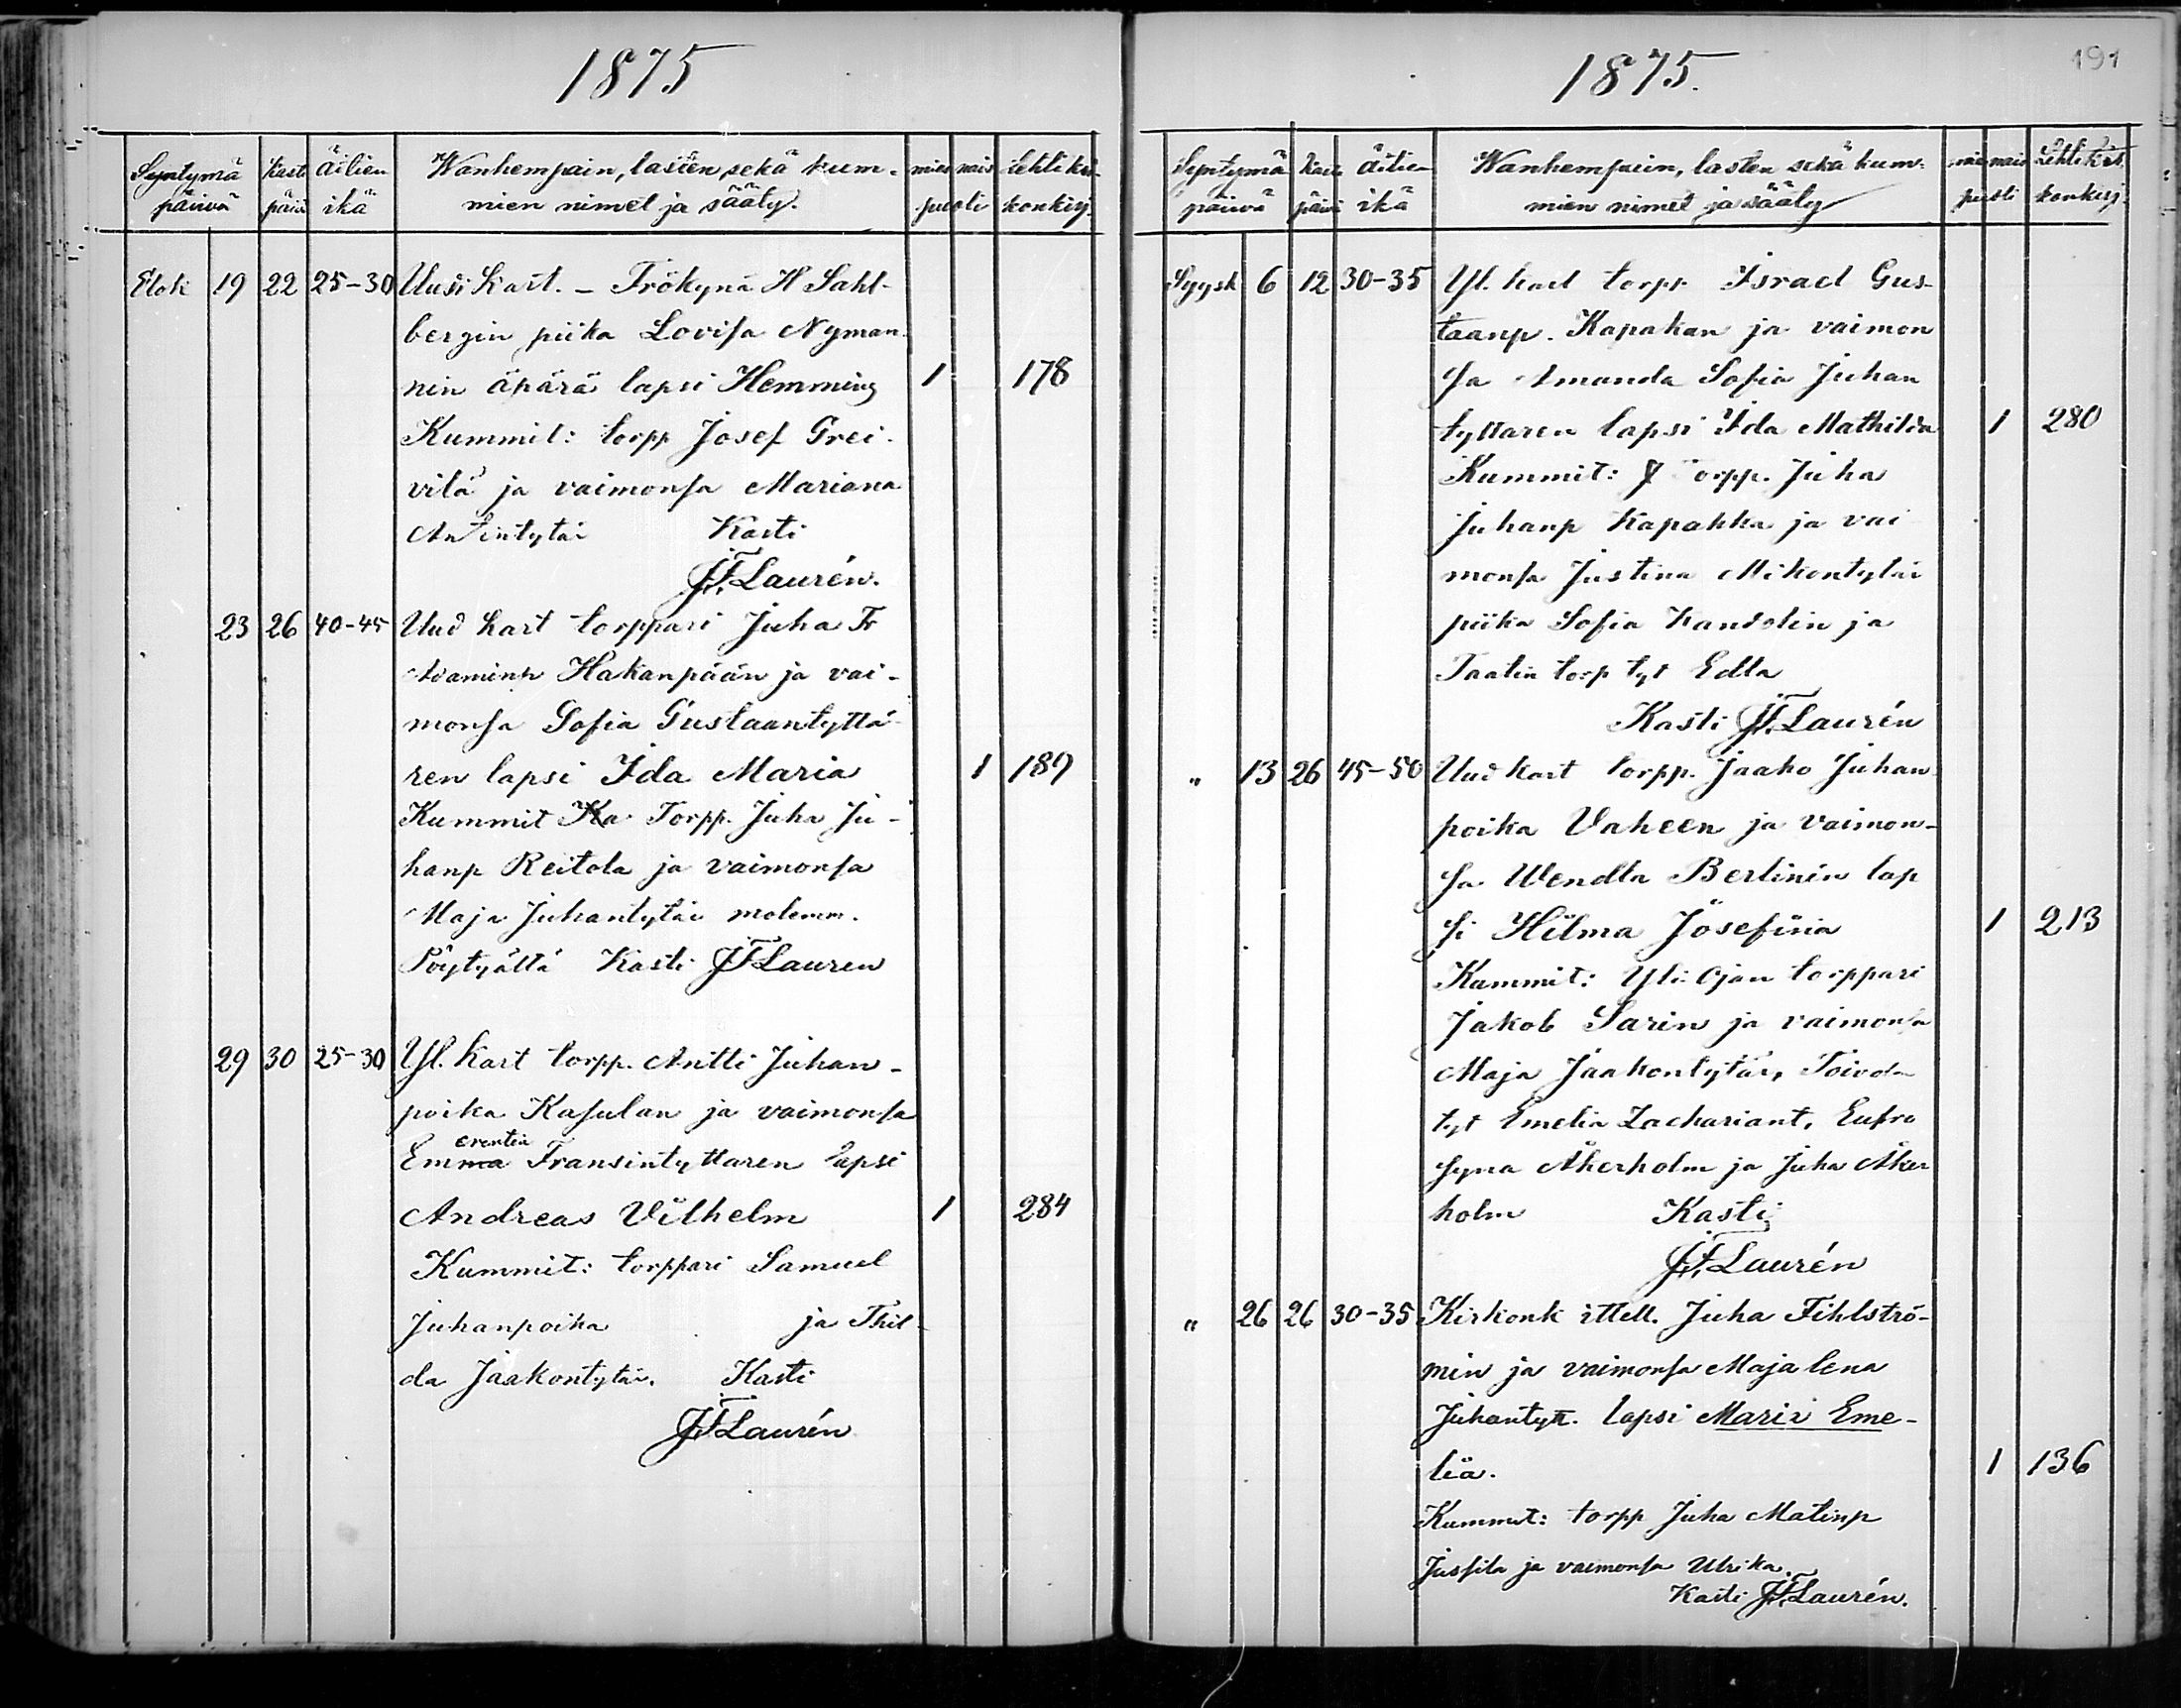 1875
Syntymä päivä | Kaste päivä | Äitien ikä | Wanhempain, lasten sekä kum-mien nimet ja sääty. | mies nais puoli | Lehti kir-konkirj.
Elok 19 22 25-30 Uusi Kart. - Frökynä H Sahl-
bergin piika Lovisa Nyman-
nin äpärä lapsi Hemming 1 178
Kummit: torpp Josef Grei-
vilä ja vaimonsa Mariana
Antintytär Kasti
JF. Laurén.
23 26 40-45 Uud Kart torppari Juha Fr
Adaminp Hakanpään ja vai-
monsa Sofia Gustaantyttä-
ren lapsi Ida Maria 1 189
Kummit Torpp. Juha Ju-
hanp Reitola ja vaimonsa
Maja Juhantytär molemm.
Pöytyältä Kasti JF Lauren
29 30 25-30 Yl. Kart torpp. Antti Juhan-
poika Kasulan ja vaimonsa
erentia
Emma Fransintyttaren lapsi
Andreas Vilhelm 1 284
Kummit: torppari Samuel
Juhanpoika ja Thil-
da Jaakontytär. Kasti
JF Laurén
1875.
191
Syntymä päivä | Kaste päivä | Äitien ikä | Wanhempain, lasten sekä kum-mien nimet ja sääty | mies nais puoli | Lehti kir konkirj.
Syysk 6 12 30-35 Yl. kart torpp. Israel Gus-
taanp. Kapakan ja vaimon
sa Amanda Sofia Juhan
tyttaren lapsi Ida Mathilda 1 280
Kummit: torpp. Juha
Juhanp Kapakka ja vai
monsa Justina Mikontytär
piika Sofia Kandolin ja
Taatin torp tyt Edla
Kasti JF. Laurén
" 13 26 45-50 Uud Kart torpp. Jaako Juhan
poika Vaheen ja vaimon-
sa Wendla Berlinin lap
si Hilma Josefina 1 213
Kummit: Yli Ojan torppari
Jakob Sarin ja vaimonsa
Maja Jaakontytär, Toivola
tyt Emelia Zachariant, Eufro
syna Åkerholm ja Juha Åker
holm Kasti
JF. Laurén
" 26 26 30-35 Kirkonk ittell. Juha Fihlströ-
min ja vaimonsa Maja lena
Juhantytt. lapsi Maria Eme-
lia. 1 136
Kummit: torpp Juha Matinp
Jussila ja vaimonsa Ulrika.
Kasti JF. Laurén.